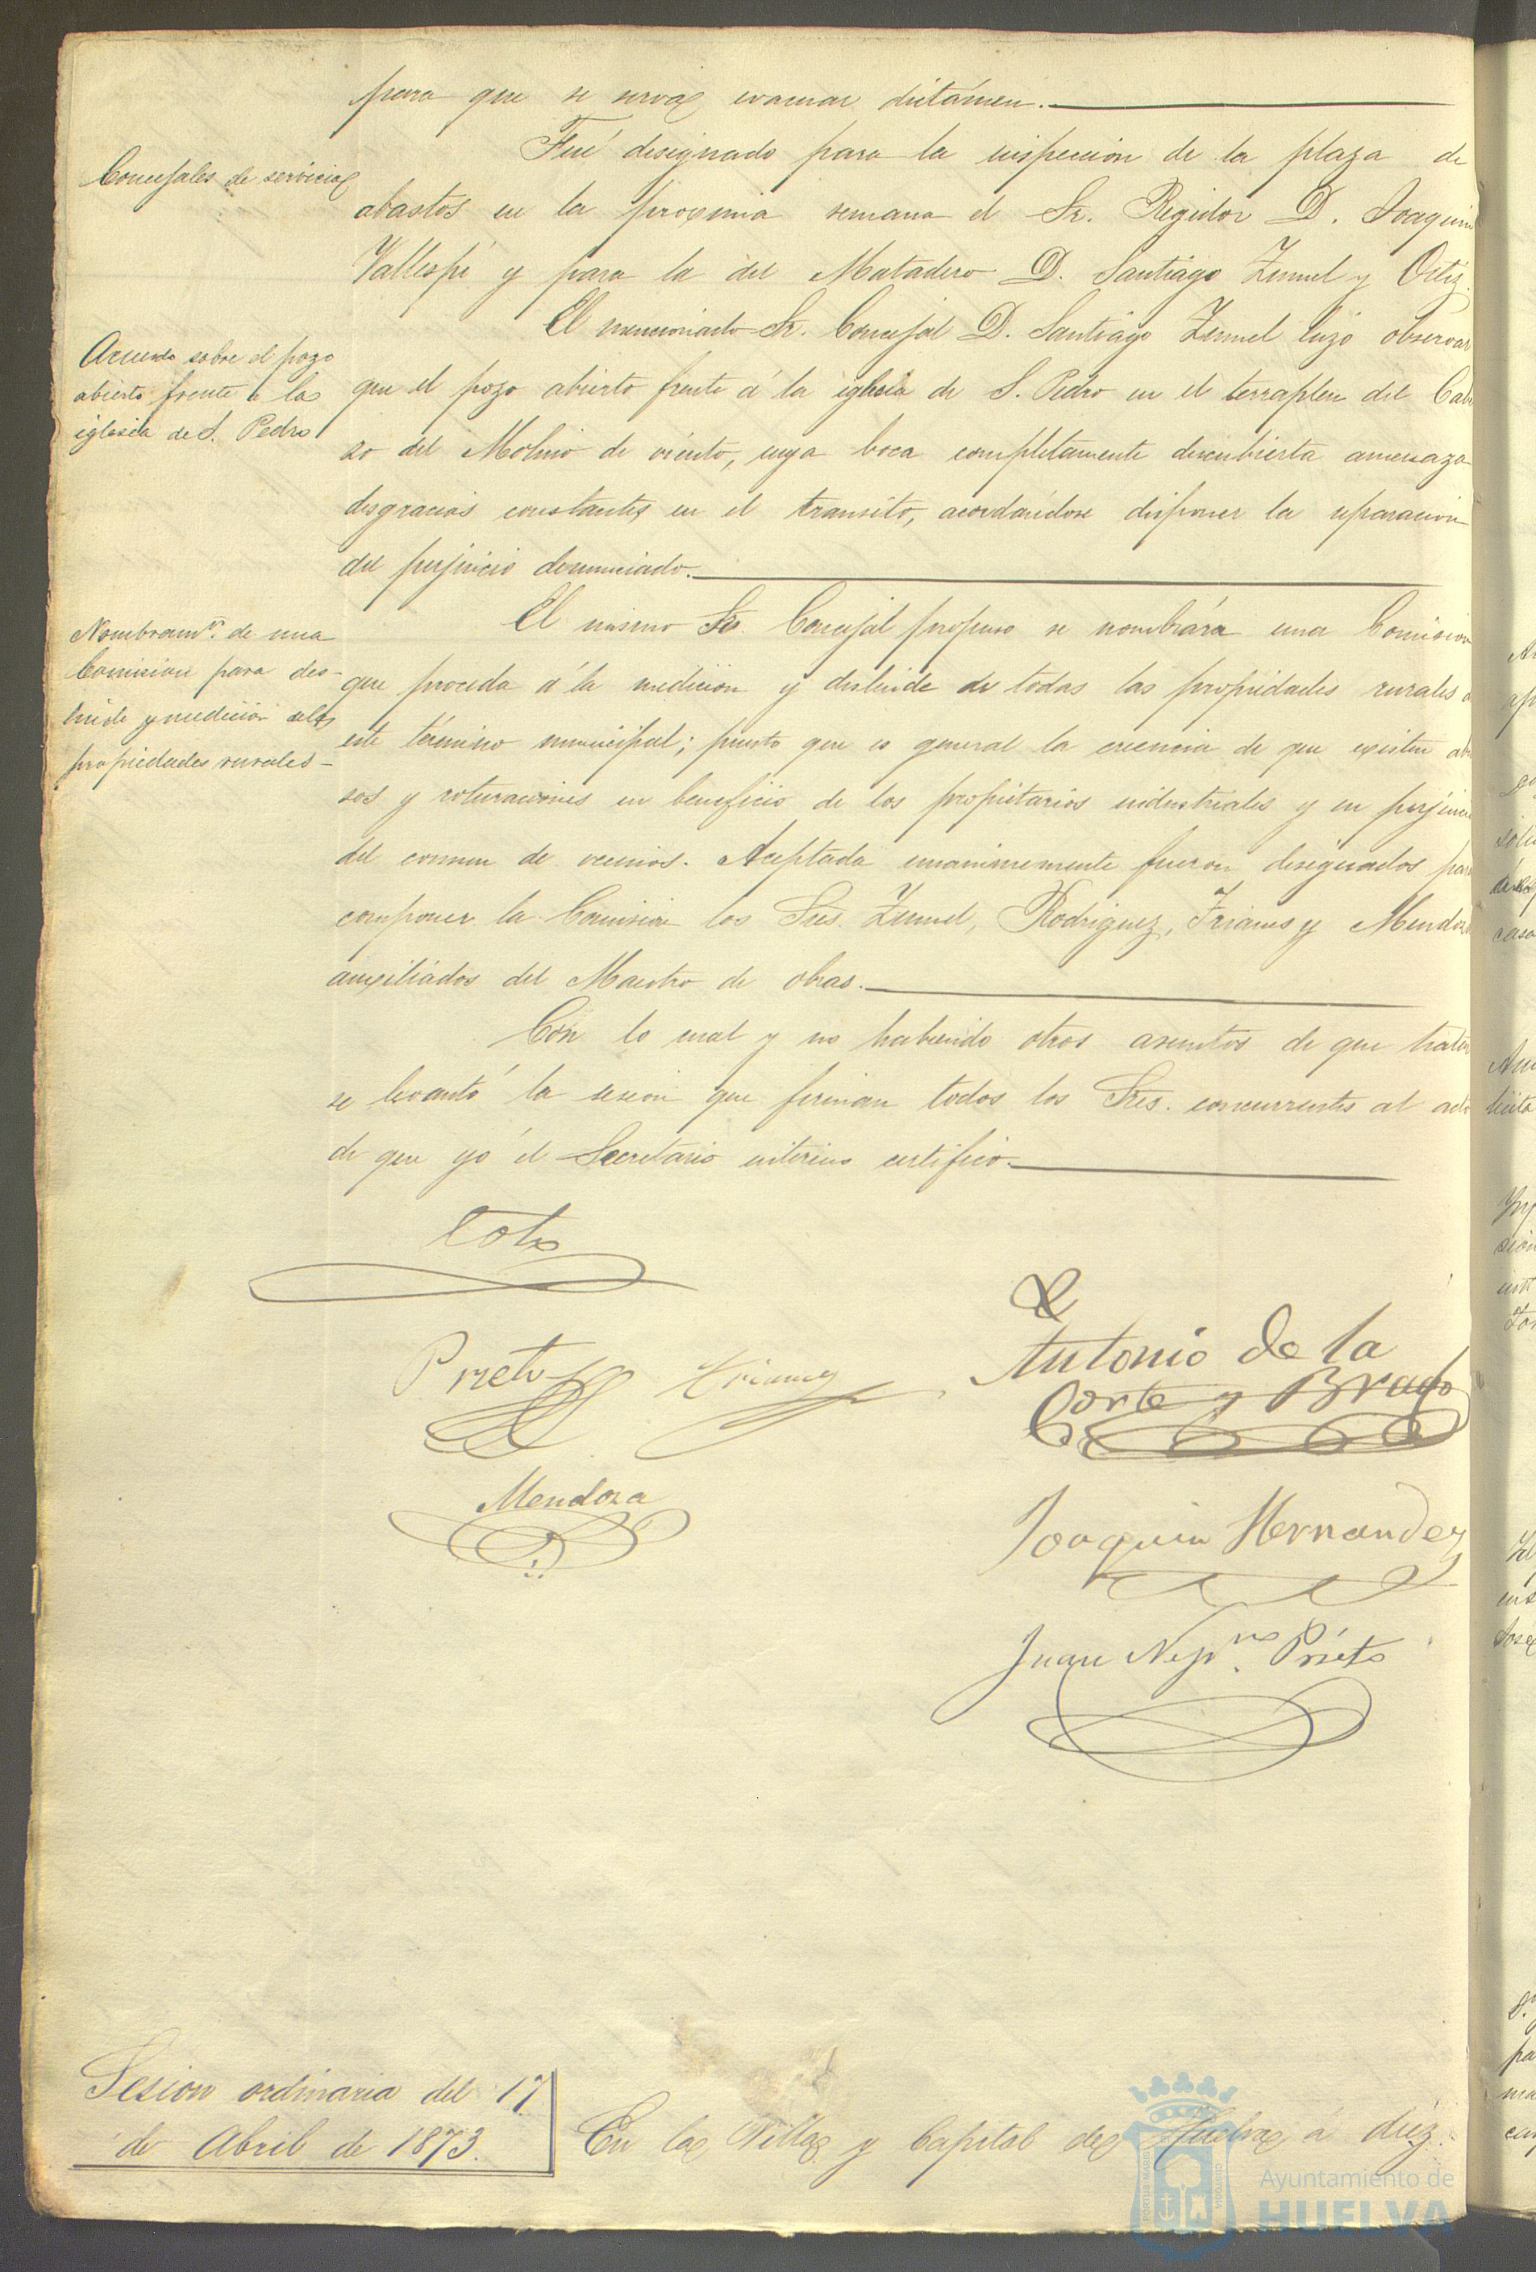 para que se sirva evacuar dictámen.
Concejales de servicio
Fué designado para la inspeccion de la plaza de
abastos en la proxima semana el Sr. Regidor D. Joaquin
Vallespi y para la del Matadero D. Santiago Zunel y Ortiz.
Acuerdo sobre el pozo
abierto frente a la
iglesia de S. Pedro
El mencionado Sr. Concejal D. Santiago Zunel hizo observar
que el pozo abierto frente á la iglesia de S. Pedro en el terraplen del Cabe
zo del Molino de viento, cuya boca completamente descubierta amenaza
desgracias constantes en el transito, acordándose disponer la reparacion
del perjuicio denunciado.
Nombramto. de una
Comision para des-
linde y medicion de las
propiedades rurales-
El mismo Sr. Concejal propuso se nombrára una Comision
que proceda á la medicion y deslinde de todas las propiedades rurales de
este término municipal; puesto que es general la creencia de que existen abu
sos y roturaciones en beneficio de los propietarios industriales y en perjuicio
del comun de vecinos. Aceptada unanimemente fueron designados para
componer la Comision los Sres. Zunel, Rodriguez, Trianes y Mendoza
auxiliados del Maestro de obras.
Con lo cual y no habiendo otros asuntos de que tratar
se levantó la sesion que firman todos los Sres. concurrentes al acto
de que yó el Secretario interino certifico.
Coto
Prieto Trianes
Antonio de la
Corte y Bravo
Mendoza
Joaquin Hernandez
Juan Nepno. Prieto
Sesion ordinaria del 17
de Abril de 1873.
En la Villa y Capital de Huelva á diez
Ayuntamiento de
HUELVA